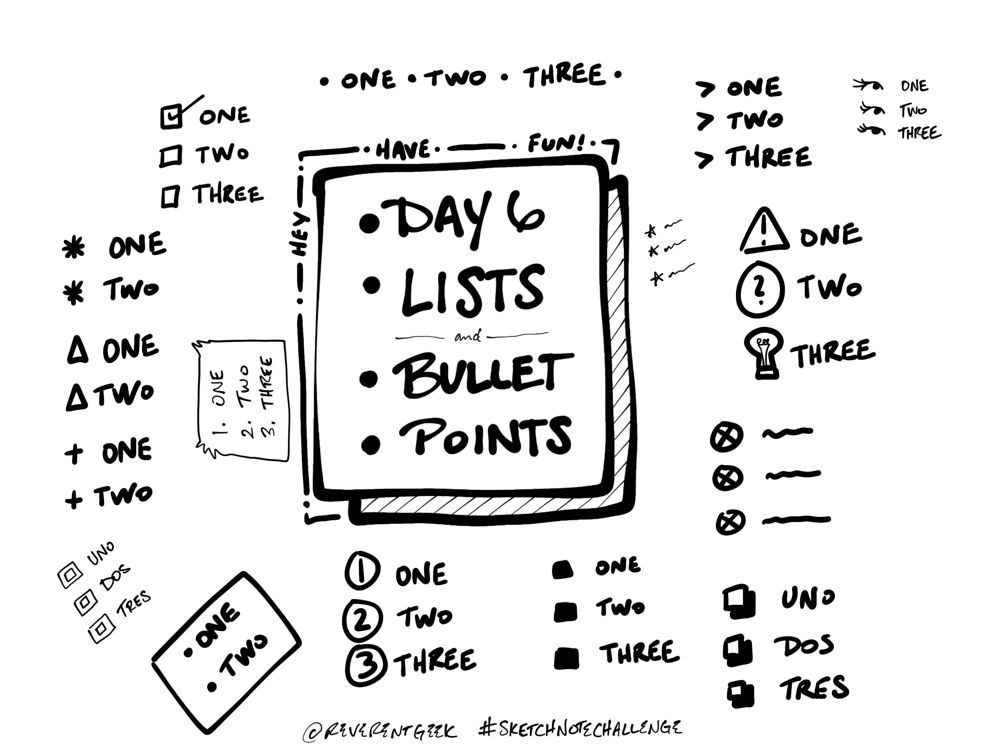 • ONE • TWO • THREE •
ONE
TWO
THREE
> ONE
> TWO
> THREE
ONE
TWO
THREE
• HAVE • • FUN! •
HEY
• DAY 6
• LISTS
and
• BULLET
• POINTS
* ONE
* TWO
△ ONE
△ TWO
+ ONE
+ TWO
1. ONE
2. TWO
3. THREE
! ONE
? TWO
THREE
UNO
DOS
TRES
• ONE
• TWO
1 ONE
2 TWO
3 THREE
■ ONE
■ TWO
■ THREE
UNO
DOS
TRES
@REVERENTGEEK #SKETCHNOTECHALLENGE